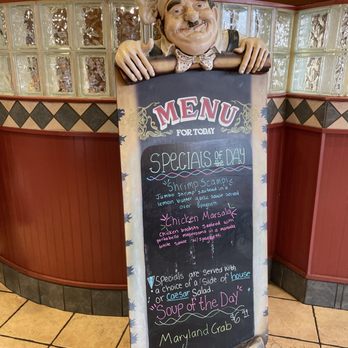 MENU
FOR TODAY
SPECIALS OF THE DAY
Shrimp Scampi
Jumbo shrimp sauteed in
lemon butter garlic sauce served
over spaghetti
Chicken Marsala
Chicken breasts sauteed with
portabello mushrooms in a marsala
wine sauce w/ spaghetti
Specials are served with
a choice of a side of house
or Caesar Salad.
Soup of the Day
Maryland Crab